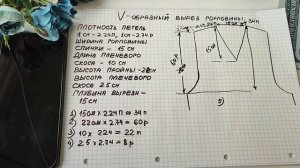 V-ОБРАЗНЫЙ ВЫРЕЗ ГОРЛОВИНЫ
ПЛОТНОСТЬ ПЕТЕЛЬ
1 СМ - 2.24П, 1СМ - 2.74Р
ШИРИНА ГОРЛОВИНЫ
СПИНКИ - 15 СМ
ДЛИНА ПЛЕЧЕВОГО
СКОСА - 10 СМ
ВЫСОТА ПРОЙМЫ - 22СМ
ВЫСОТА ПЛЕЧЕВОГО
СКОСА 2.5 СМ
ГЛУБИНА ВЫРЕЗА -
15СМ
1) 15СМ х 2.24П = 34П
2) 22СМ х 2.74 = 60Р
3) 10 х 2.24 = 22П
4) 2.5 х 2.74 = 8Р
34П
60Р
15СМ